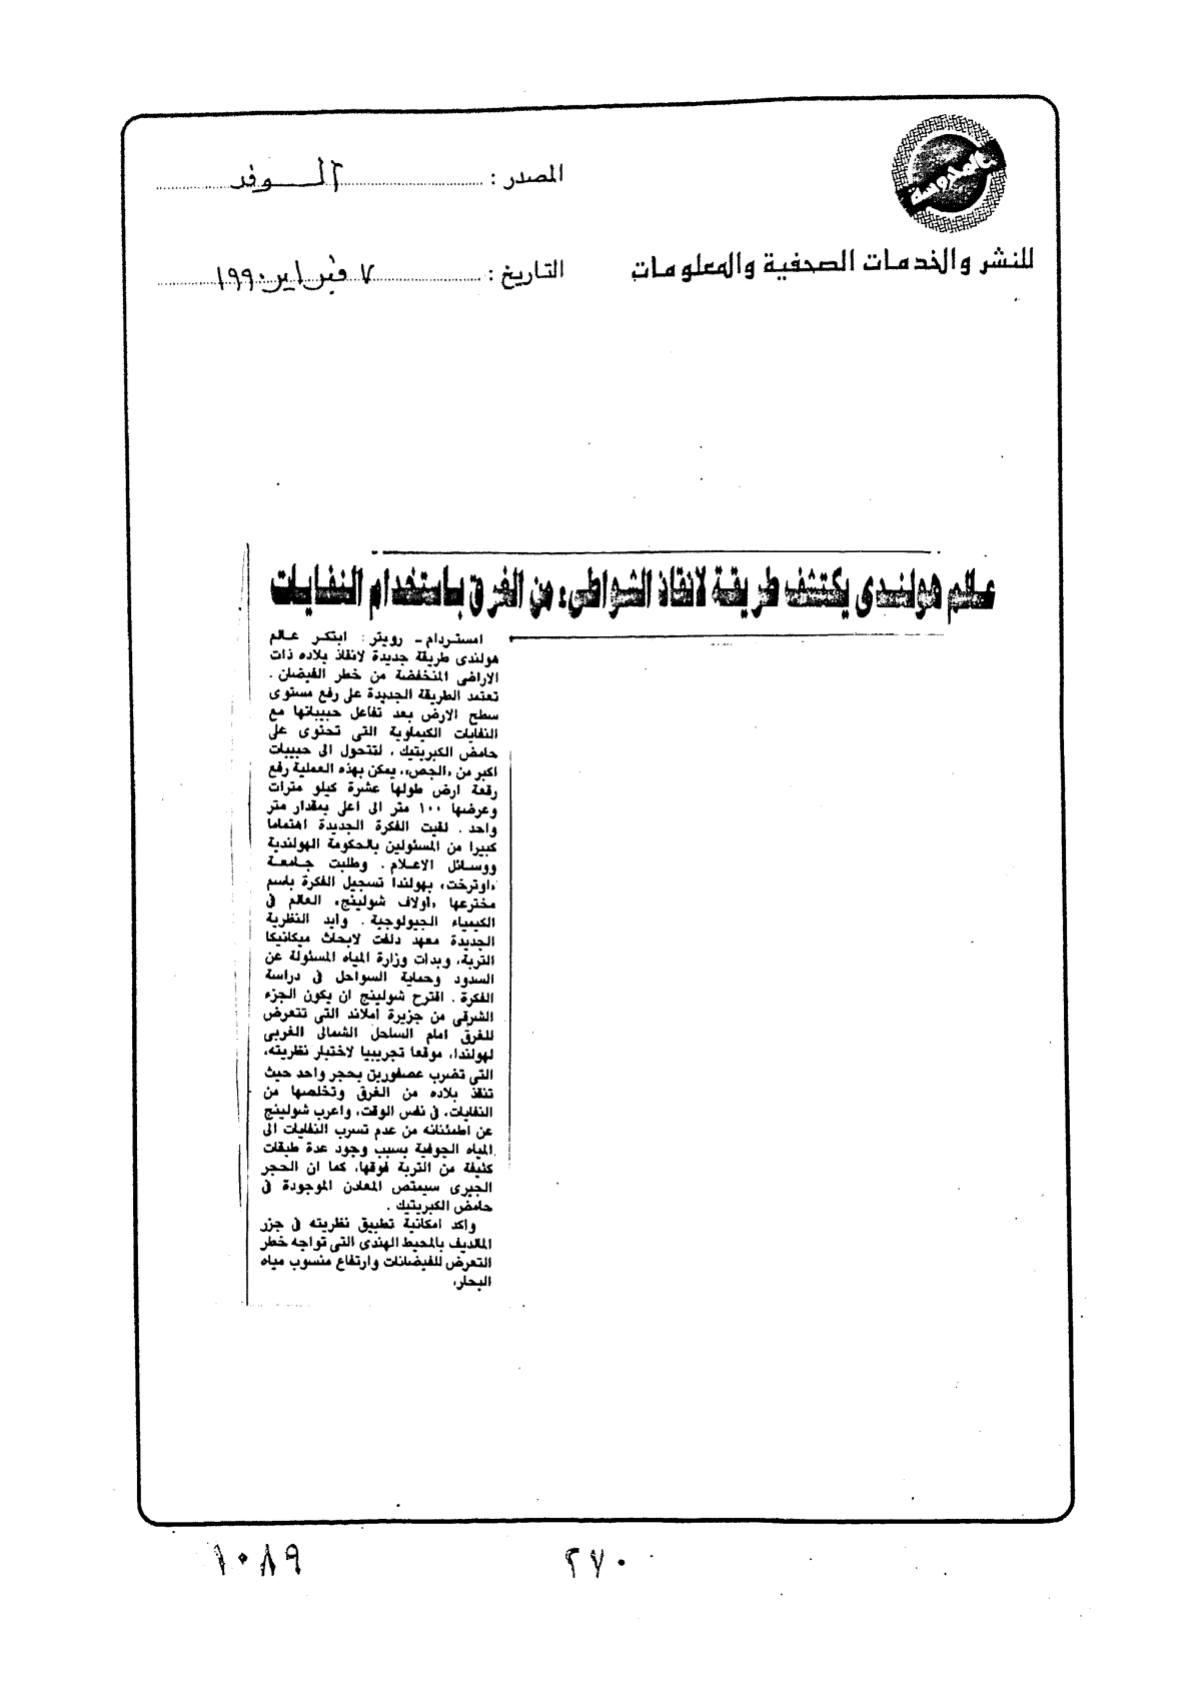 المحروسة
للنشر والخدمات الصحفية والمعلومات
المصدر : الوفد
التاريخ : ٧ فبراير ١٩٩٠
عالم هولندى يكتشف طريقة لانقاذ الشواطىء من الغرق باستخدام النفايات
امستردام - رويتر : ابتكر عالم
هولندى طريقة جديدة لانقاذ بلاده ذات
الاراضى المنخفضة من خطر الفيضان .
تعتمد الطريقة الجديدة على رفع مستوى
سطح الارض بعد تفاعل حبيباتها مع
النفايات الكيماوية التى تحتوى على
حامض الكبريتيك ، لتتحول الى حبيبات
اكبر من «الجص». يمكن بهذه العملية رفع
رقعة ارض طولها عشرة كيلو مترات
وعرضها ١٠٠ متر الى اعلى بمقدار متر
واحد . لقيت الفكرة الجديدة اهتماما
كبيرا من المسئولين بالحكومة الهولندية
ووسائل الاعلام . وطلبت جامعة
«اوترخت» بهولندا تسجيل الفكرة باسم
مخترعها «اولاف شولينج» العالم فى
الكيمياء الجيولوجية . وايد النظرية
الجديدة معهد دلفت لابحاث ميكانيكا
التربة، وبدات وزارة المياه المسئولة عن
السدود وحماية السواحل فى دراسة
الفكرة . اقترح شولينج ان يكون الجزء
الشرقى من جزيرة املاند التى تتعرض
للغرق امام الساحل الشمالى الغربى
لهولندا، موقعا تجريبيا لاختبار نظريته،
التى تضرب عصفورين بحجر واحد حيث
تنقذ بلاده من الغرق وتخلصها من
النفايات، فى نفس الوقت، واعرب شولينج
عن اطمئنانه من عدم تسرب النفايات الى
المياه الجوفية بسبب وجود عدة طبقات
كثيفة من التربة فوقها، كما ان الحجر
الجيرى سيمتص المعادن الموجودة فى
حامض الكبريتيك .
واكد امكانية تطبيق نظريته فى جزر
المالديف بالمحيط الهندى التى تواجه خطر
التعرض للفيضانات وارتفاع منسوب مياه
البحار.
١٠٨٩
٢٧٠